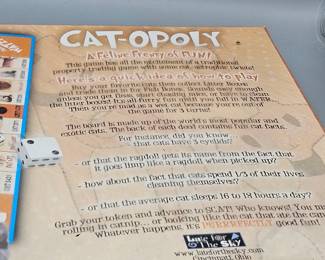 CAT-OPOLY
A Feline Frenzy of FUN!
This game has all the excitement of a traditional
property trading game with some cat-astrophic twists!
Here's a quick idea of how to play
Buy your favorite cats then collect Litter Boxes
and trade them in for Fish Bones. Sounds easy enough
unless you get fleas, start chasing mice, or have to clean
the litter box! It's all furry fun until you fall in WATER...
Then you're mad as a wet cat because you're out of
the game for 3 turns!
The board is made up of the world's most popular and
exotic cats. The back of each deed contains fun cat facts.
For instance, did you know...
- that cats have 3 eyelids?
- or that the ragdoll gets its name from the fact that
it goes limp like a ragdoll when picked up?
- how about the fact that cats spend 1/3 of their lives
cleaning themselves?
- or that the average cat sleeps 16 to 18 hours a day?
Grab your token and advance to SCAT! Who knows! You may
rolling in catnip... or looking like the cat that ate the canary
Whatever happens, it's PURRRRFECTLY good fun!
Late For
The Sky
www.lateforthesky.com
Cincinnati, Ohio